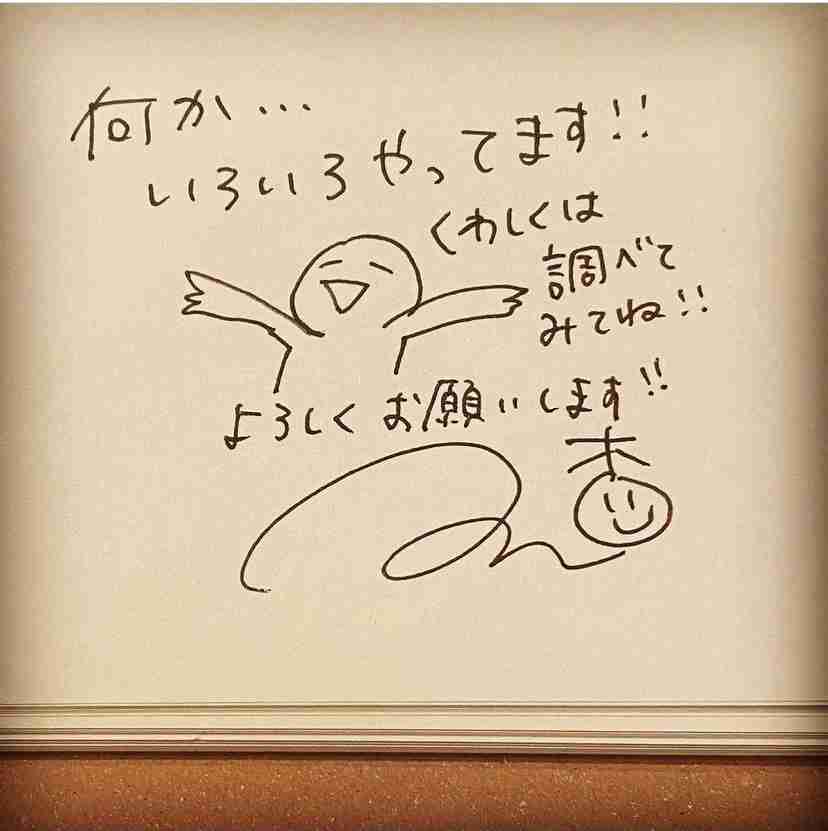 何か…
いろいろやってます!!
くわしくは
調べて
みてね!!
よろしくお願いします!!